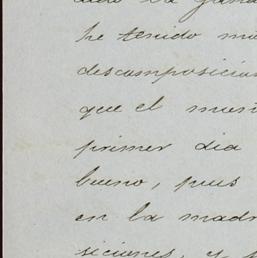 he tenido mu
descomposicion
que el mun
primer dia
bueno, pues
en la madr
siciones, y p